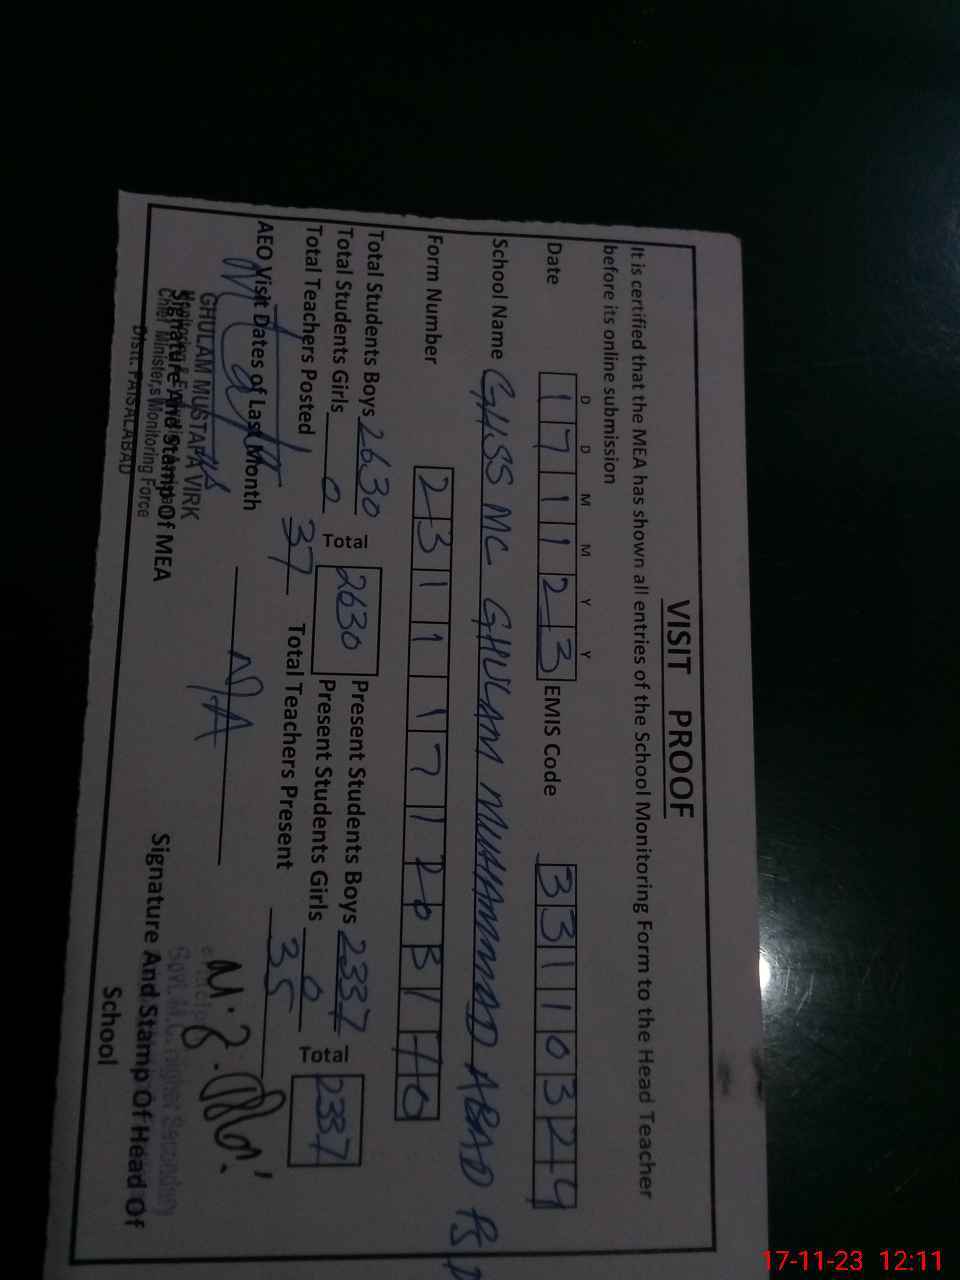 VISIT PROOF
It is certified that the MEA has shown all entries of the School Monitoring Form to the Head Teacher
before its online submission
D D M M Y Y
Date 1 7 1 1 2 3 EMIS Code 3 3 1 1 0 3 2 4
School Name GHSS MC GHULAM MUHAMMAD ABAD
Form Number 2 3 1 1 1 7 1 2 0 3 1 10
Total Students Boys 2630 Total 2630 Present Students Boys 2337 Total 2337
Total Students Girls 0 Present Students Girls 0
Total Teachers Posted 37 Total Teachers Present 35
AEO Visit Dates of Last Month N/A
GHULAM MUSTAFA VIRK
Chief Minister,s Monitoring Force
Distt. FAISALABAD
Signature And Stamp Of MEA
Signature And Stamp Of Head Of
School
17-11-23 12:11